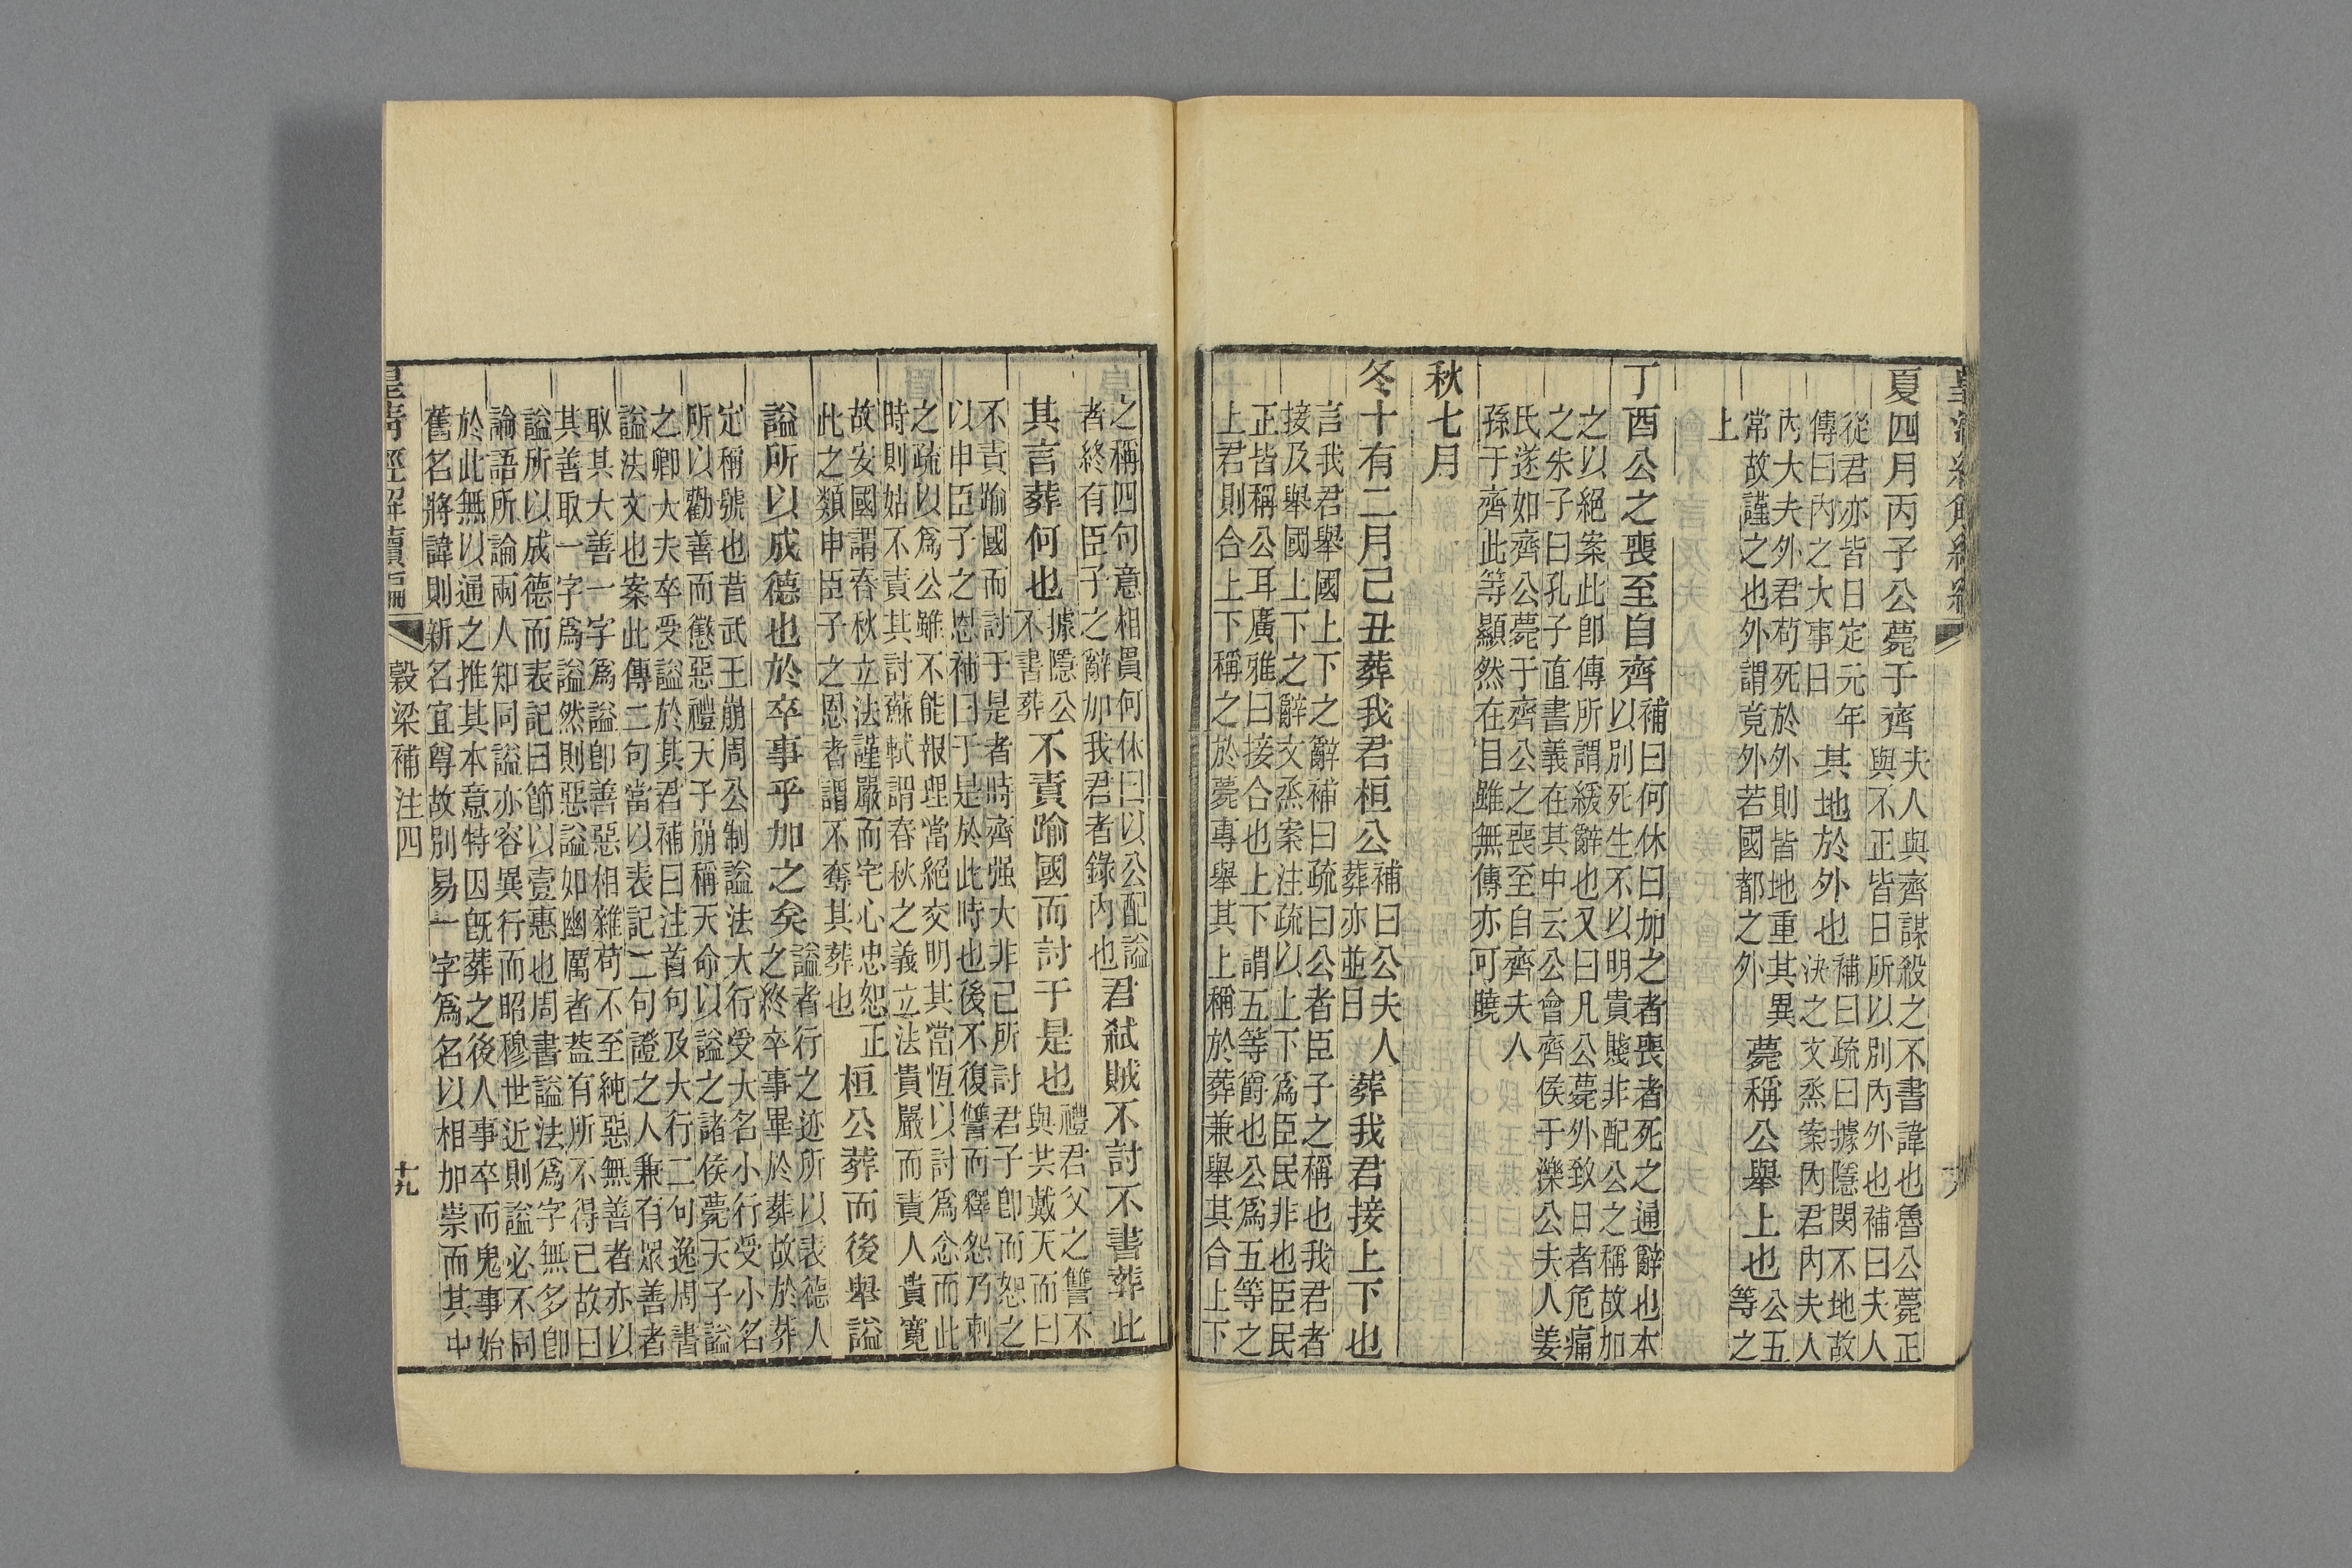 夏四月丙子公薨于齊
夫人與齊謀殺之不書諱也魯公薨正
與不正皆日所以別內外也補曰夫人
從君亦皆日定元年
傳曰內之大事日
其地於外也
補曰疏曰據隱閔不地故
決之文烝案內君內夫人
內大夫外君苟死於外則皆地重其異
常故謹之也外謂竟外外若國都之外
薨稱公舉上也
公五
等之
上
丁酉公之喪至自齊
補曰何休曰加之者喪者死之通辭也本
以別死生不以明貴賤非配公之稱故加
之以絕案此卽傳所謂緩辭也又曰凡公薨外致日者危痛
之朱子曰孔子直書義在其中云公會齊侯于濼公夫人姜
氏遂如齊公薨于齊公之喪至自齊夫人
孫于齊此等顯然在目雖無傳亦可曉
秋七月
冬十有二月己丑葬我君桓公
補曰公夫人
葬亦並日
葬我君接上下也
言我君舉國上下之辭補曰疏曰公者臣子之稱也我君者
接及舉國上下之辭文烝案注疏以上下爲臣民非也臣民
正皆稱公耳廣雅曰接合也上下謂五等爵也公爲五等之
上君則合上下稱之於薨專舉其上稱於葬兼舉其合上下
之稱四句意相貫何休曰以公配謚
者終有臣子之辭加我君者錄內也
君弑賊不討不書葬此
其言葬何也
據隱公
不書葬
不責踰國而討于是也
禮君父之讐不
與共戴天而曰
不責踰國而討于是者時齊强大非己所討君子卽而恕之
以申臣子之恩補曰于是於此時也後不復讐而釋怨乃刺
之疏以爲公雖不能報理當絕交明其當恆以討爲念而此
時則姑不責其討蘇軾謂春秋之義立法貴嚴而責人貴寬
故安國謂春秋立法謹嚴而宅心忠恕正
此之類申臣子之恩者謂不奪其葬也
桓公葬而後舉謚
謚所以成德也於卒事乎加之矣
謚者行之迹所以表德人
之終卒事畢於葬故於葬
定稱號也昔武王崩周公制謚法大行受大名小行受小名
所以勸善而懲惡禮天子崩稱天命以謚之諸侯薨天子謚
之卿大夫卒受謚於其君補曰注首句及大行二句逸周書
謚法文也案此傳二句當以表記二句證之人兼有眾善者
取其大善一字爲謚卽善惡相雜苟不至純惡無善者亦以
其善取一字爲謚然則惡謚如幽厲者葢有所不得已故曰
謚所以成德而表記曰節以壹惠也周書謚法爲字無多卽
論語所論兩人知同謚亦容異行而昭穆世近則謚必不同
於此無以通之推其本意特因旣葬之後人事卒而鬼事始
舊名將諱則新名宜尊故別易一字爲名以相加崇而其中
皇清經解續編
穀梁補注四
十九